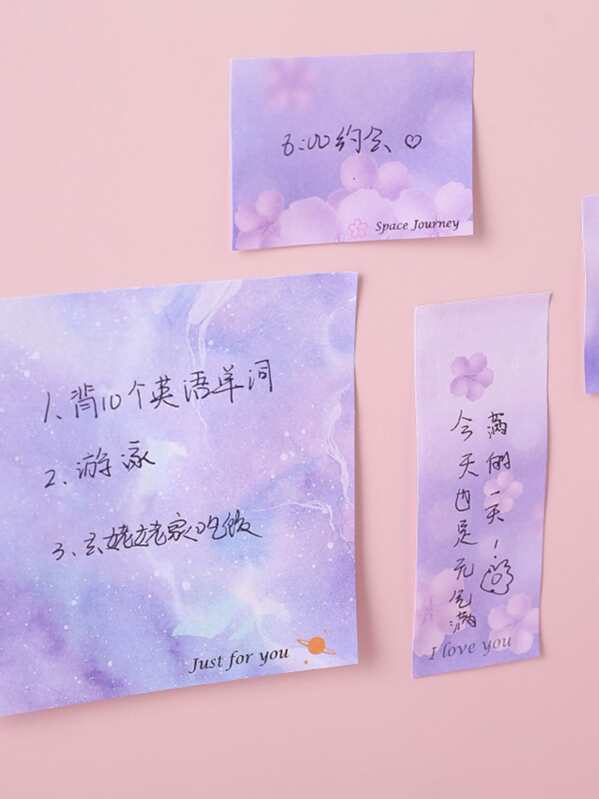 6:00 约会 ♡
Space Journey
1、背10个英语单词
2、游泳
3、去姥姥家吃饭
Just for you
今天也是元气满
满的一天！
I love you